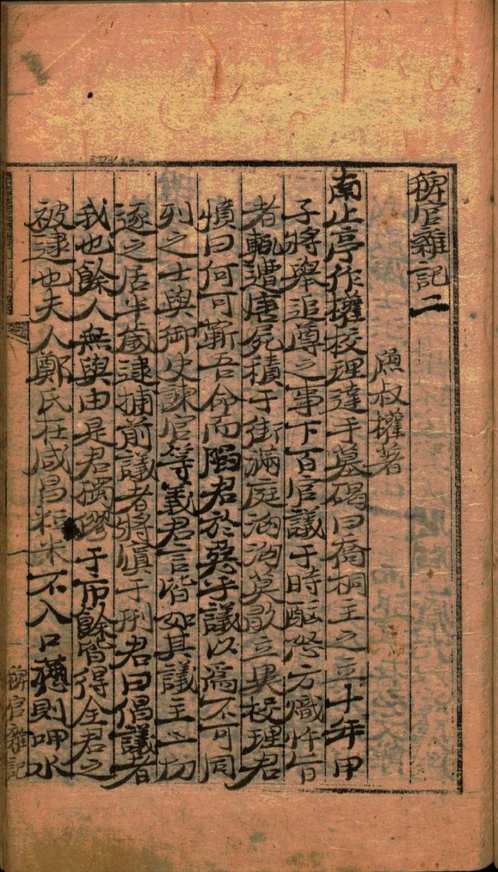 稗官雜記二
魚叔權著
南止亭作權校理達手墓碣曰喬桐王之立十年甲
子將舉追尊之事下百官議于時酷烈方熾忤旨
者輒遭虐屍積于街滿庭洶洶莫敢立異校理君
憤曰何可靳吾命而陷君於惡乎議以爲不可同
列之士與御史諫官等義君言皆如其議主一切
逐之居半歲逮捕前議者將愼于刑君曰倡議者
我也餘人無與由是君獨戮于市餘皆得全君之
被逮也夫人鄭氏在咸昌不入口則呷水
稗官雜記